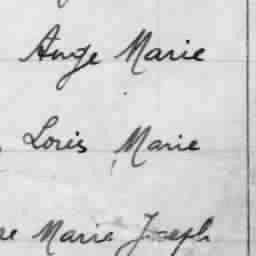 Ange Marie
Loris Marie
Marie Joseph